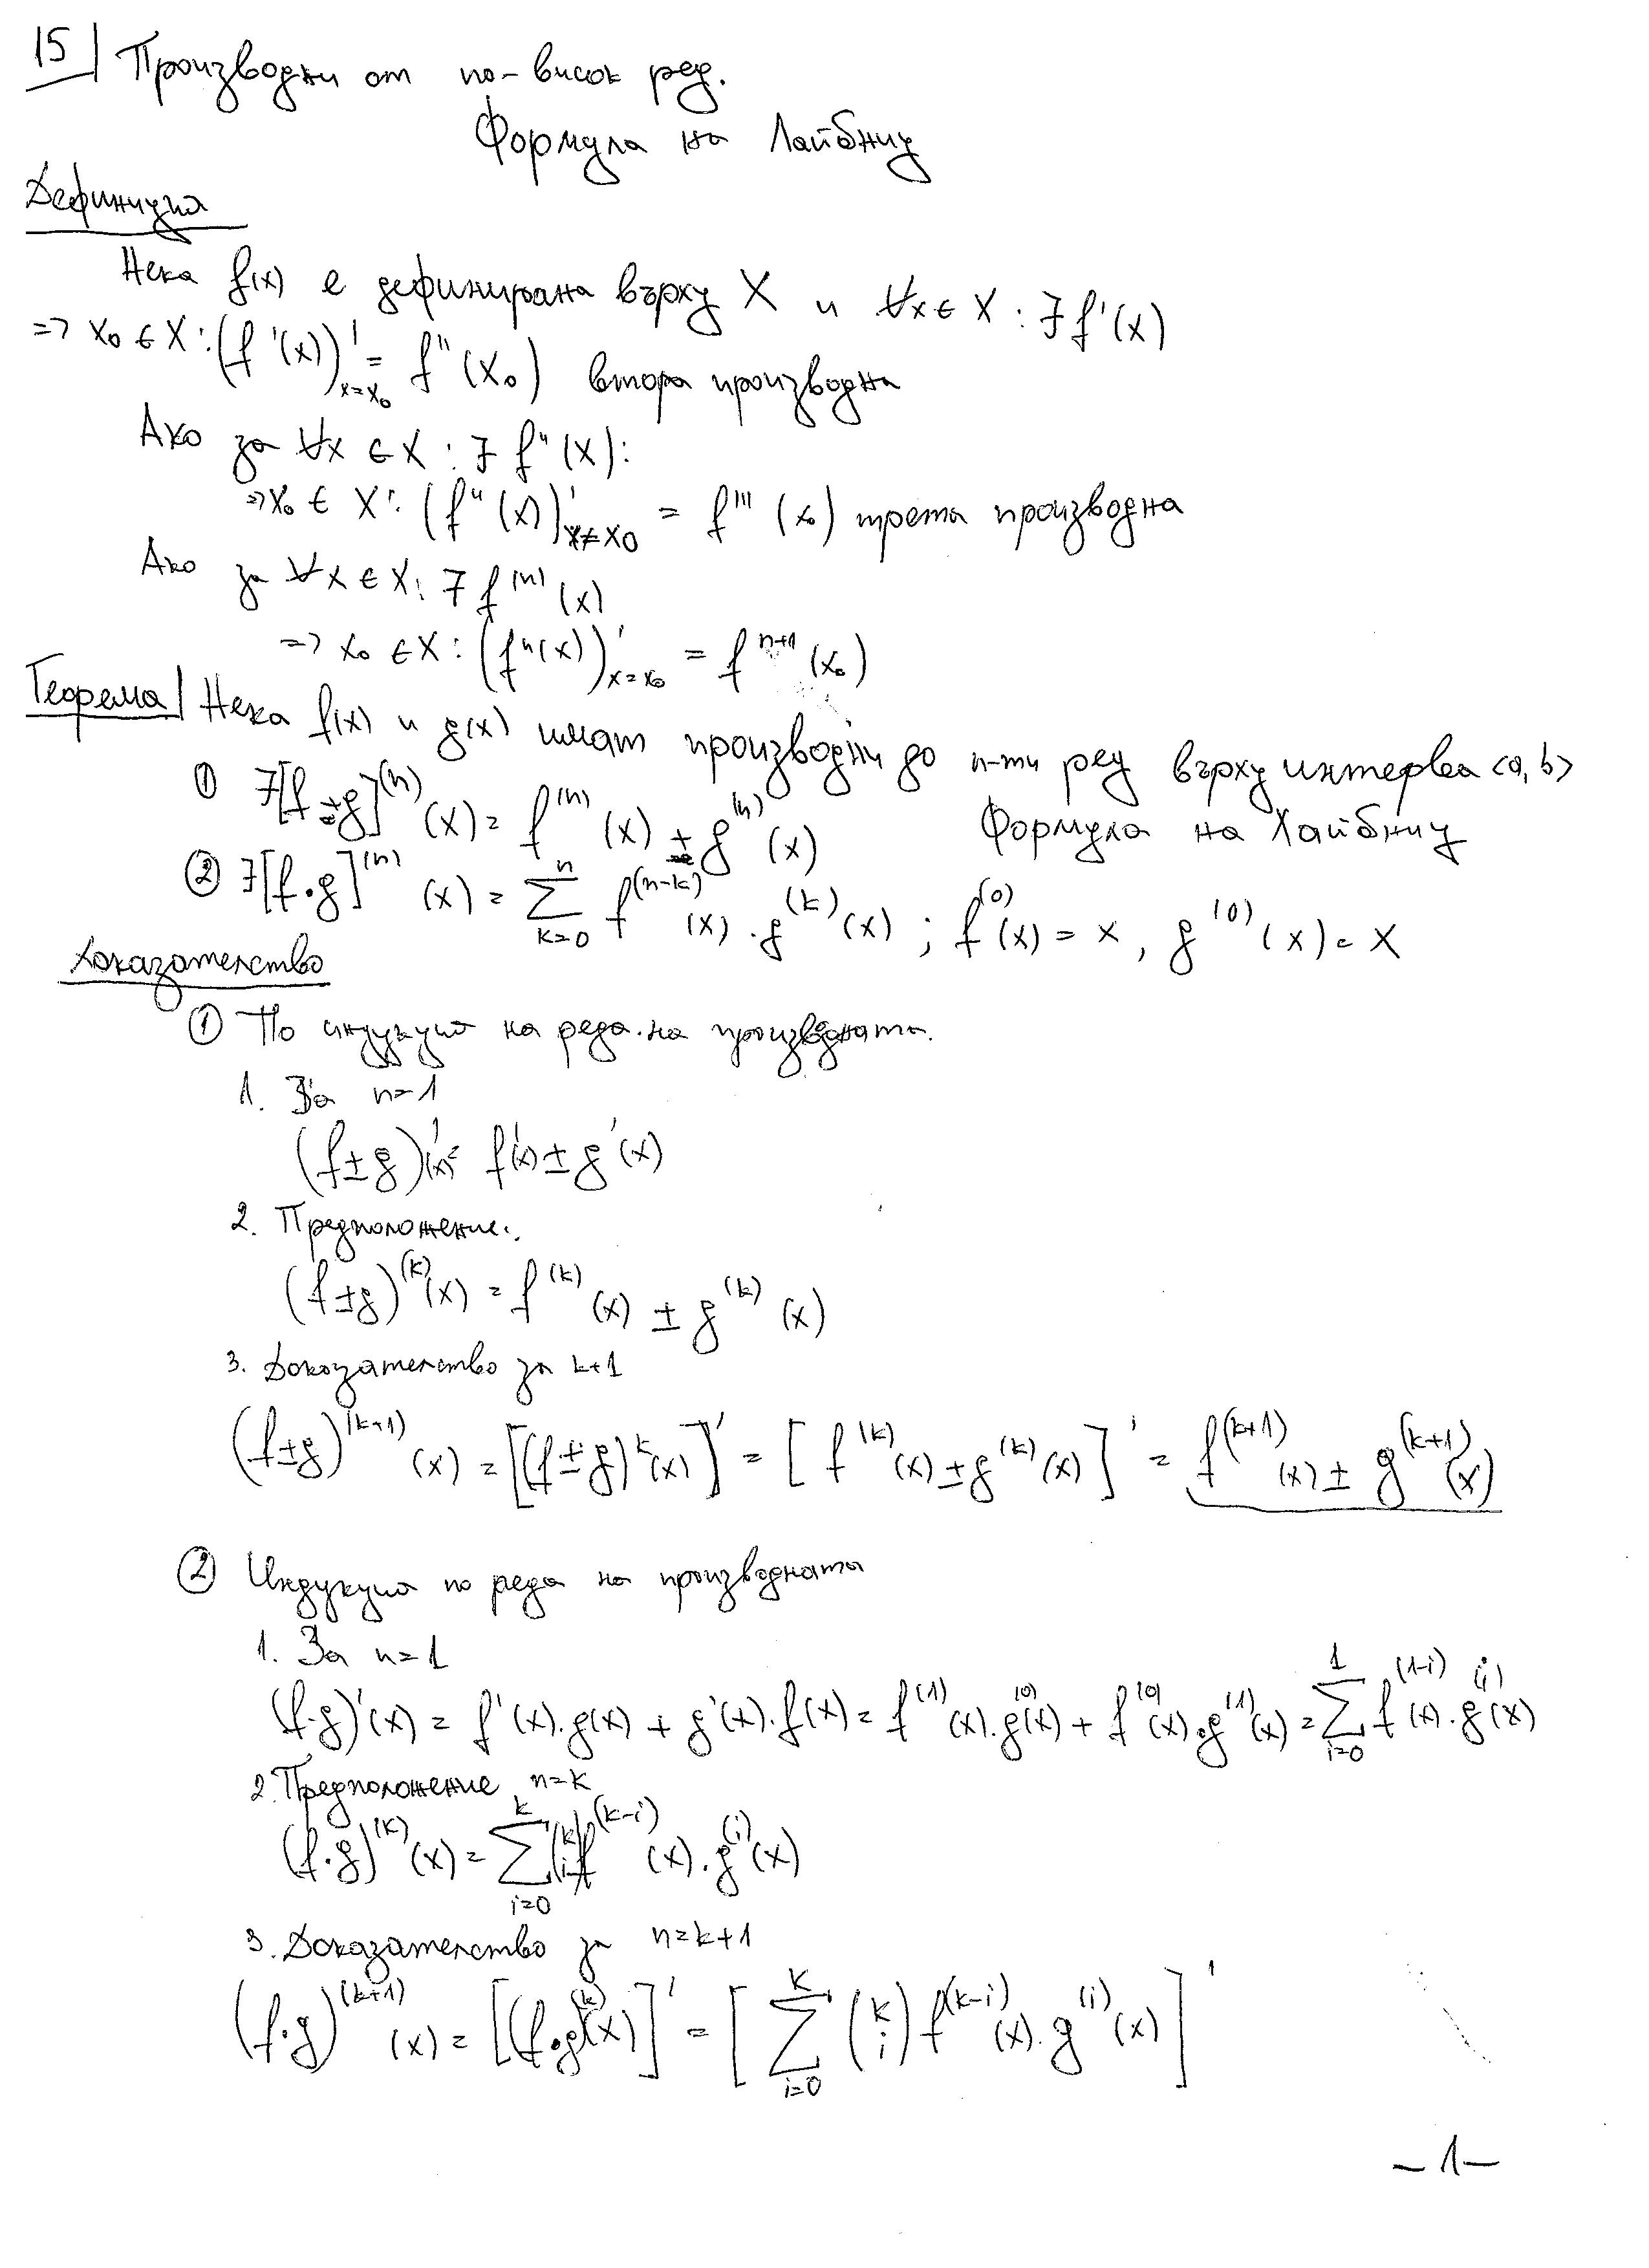 15| Производни от по-висок ред.
Формула на Лайбниц
Дефиниция
Нека f(x) е дефинирана върху X и ∀x∈X : ∃ f'(x)
=> x₀ ∈ X : (f'(x))'ₓ₌ₓ₀ = f''(x₀) втора производна
Ако за ∀x ∈ X : ∃ f''(x):
=> x₀ ∈ X : (f''(x))'ₓ₌ₓ₀ = f'''(x₀) трета производна
Ако за ∀x ∈ X : ∃ f⁽ⁿ⁾(x)
=> x₀ ∈ X : (fⁿ(x))'ₓ₌ₓ₀ = fⁿ⁺¹(x₀)
Теорема| Нека f(x) и g(x) имат производни до n-ти ред върху интервал <a, b>
① ∃[f ± g]⁽ⁿ⁾(x) = f⁽ⁿ⁾(x) ± g⁽ⁿ⁾(x)
Формула на Лайбниц
② ∃[f·g]⁽ⁿ⁾(x) = ∑ₖ₌₀ⁿ f⁽ⁿ⁻ᵏ⁾(x)·g⁽ᵏ⁾(x) ; f⁽⁰⁾(x) = x, g⁽⁰⁾(x) = x
Доказателство
① По индукция на реда на производната.
1. За n=1
(f±g)'(x) = f'(x) ± g'(x)
2. Предположение:
(f±g)⁽ᵏ⁾(x) = f⁽ᵏ⁾(x) ± g⁽ᵏ⁾(x)
3. Доказателство за k+1
(f±g)⁽ᵏ⁺¹⁾(x) = [(f±g)ᵏ(x)]' = [f⁽ᵏ⁾(x) ± g⁽ᵏ⁾(x)]' = f⁽ᵏ⁺¹⁾(x) ± g⁽ᵏ⁺¹⁾(x)
② Индукция по реда на производната
1. За n=1
(f·g)'(x) = f'(x).g(x) + g'(x).f(x) = f⁽¹⁾(x).g⁽⁰⁾(x) + f⁽⁰⁾(x).g⁽¹⁾(x) = ∑ᵢ₌₀¹ f⁽¹⁻ⁱ⁾(x).g⁽ⁱ⁾(x)
2. Предположение n=k
(f·g)⁽ᵏ⁾(x) = ∑ᵢ₌₀ᵏ (k i) f⁽ᵏ⁻ⁱ⁾(x).g⁽ⁱ⁾(x)
3. Доказателство за n=k+1
(f·g)⁽ᵏ⁺¹⁾(x) = [(f·g)⁽ᵏ⁾(x)]' = [∑ᵢ₌₀ᵏ (k i) f⁽ᵏ⁻ⁱ⁾(x).g⁽ⁱ⁾(x)]'
-1-